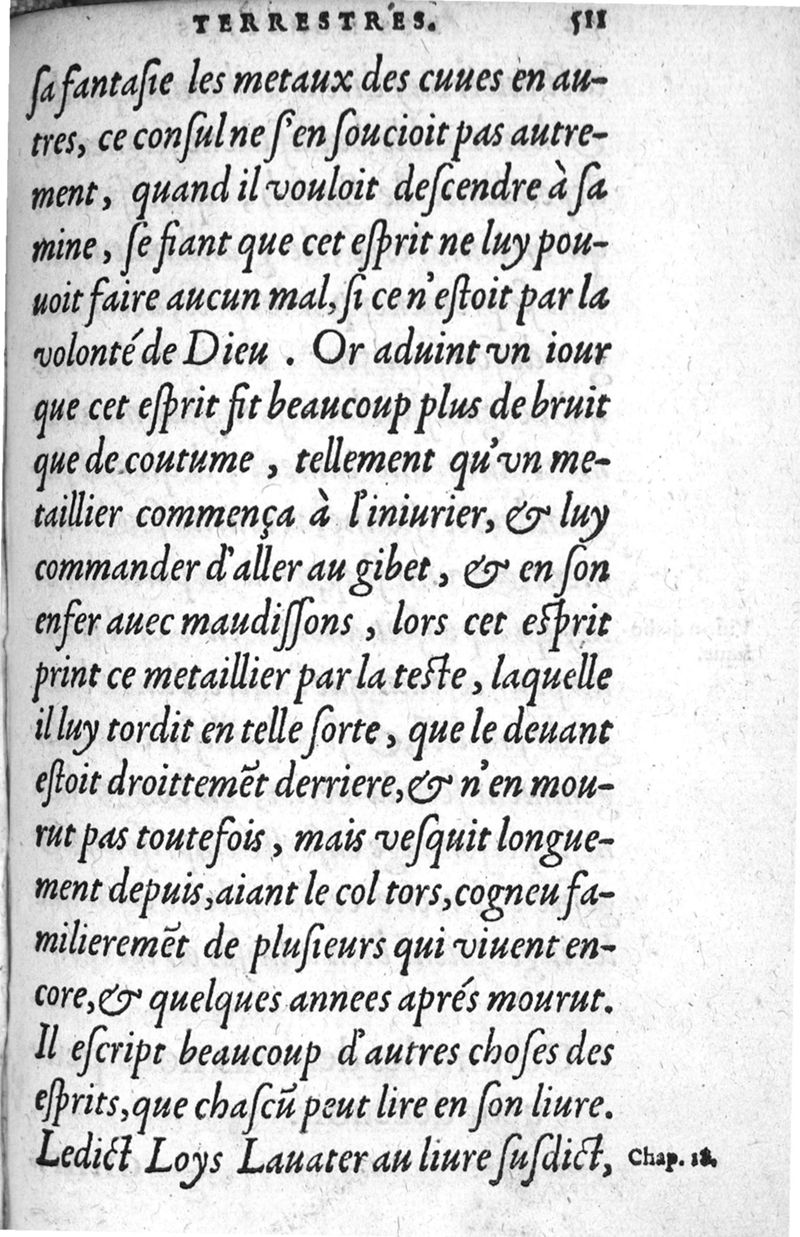 TERRESTRES. 511
ſa fantaſie les metaux des cuues en au-
tres, ce conſul ne ſ'en ſoucioit pas autre-
ment, quand il vouloit deſcendre à ſa
mine, ſe fiant que cet eſprit ne luy pou-
uoit faire aucun mal, ſi ce n'eſtoit par la
volonté de Dieu . Or aduint vn iour
que cet eſprit fit beaucoup plus de bruit
que de coutume , tellement qu'vn me-
taillier commença à l'iniurier, & luy
commander d'aller au gibet, & en ſon
enfer auec maudiſſons , lors cet eſprit
print ce metaillier par la teſte, laquelle
il luy tordit en telle ſorte, que le deuant
eſtoit droittemẽt derriere, & n'en mou-
rut pas toutefois, mais veſquit longue-
ment depuis, aiant le col tors, cogneu fa-
milieremẽt de pluſieurs qui viuent en-
core, & quelques annees aprés mourut.
Il eſcript beaucoup d'autres choſes des
eſprits, que chaſcũ peut lire en ſon liure.
Ledict Loys Lauater au liure ſuſdict, Chap. 18.